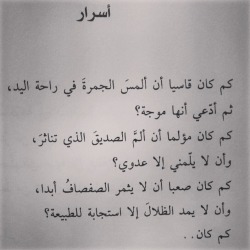 أسرار
كم كان قاسيا أن ألمسَ الجمرةَ في راحة اليد،
ثم أدّعي أنها موجة؟
كم كان مؤلما أن ألمَّ الصديقَ الذي تناثرَ،
وأن لا يلّمني إلا عدوي؟
كم كان صعبا أن لا يثمر الصفصافُ أبدا،
وأن لا يمد الظلالَ إلا استجابة للطبيعة؟
كم كان..